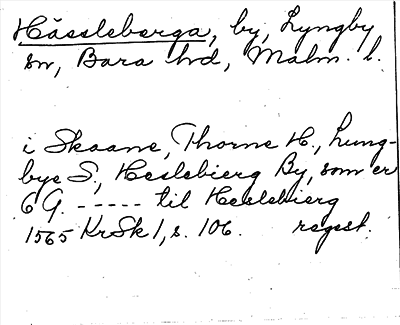 Hässleberga, by, Lyngby
sn, Bara hd, Malm. l.
i Skaane, Thorne H., Lung-
bye S., Heslebierg By, som er
6 G. ----- til Heslebierg
1565 KrSk 1, s. 106. regest.